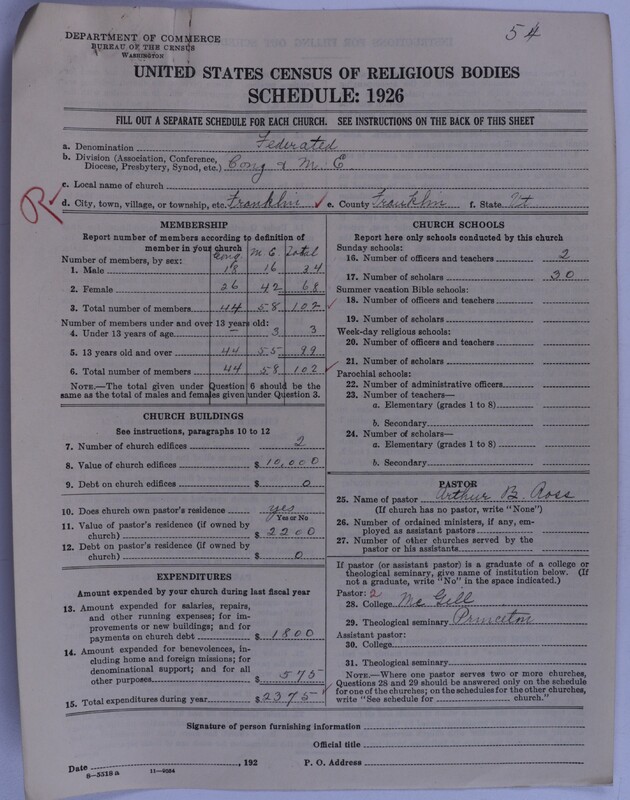 54
DEPARTMENT OF COMMERCE
BUREAU OF THE CENSUS
WASHINGTON
UNITED STATES CENSUS OF RELIGIOUS BODIES
SCHEDULE: 1926
FILL OUT A SEPARATE SCHEDULE FOR EACH CHURCH. SEE INSTRUCTIONS ON THE BACK OF THIS SHEET
a. Denomination Federated
b. Division (Association, Conference, Diocese, Presbytery, Synod, etc.) Cong & M. E.
c. Local name of church
R
d. City, town, village, or township, etc. Franklin e. County Franklin f. State Vt
MEMBERSHIP
Report number of members according to definition of member in your church
Cong M. E. Total
Number of members, by sex:
1. Male 18 16 34
2. Female 26 42 68
3. Total number of members 44 58 102
Number of members under and over 13 years old:
4. Under 13 years of age — 3 3
5. 13 years old and over 44 55 99
6. Total number of members 44 58 102
NOTE.—The total given under Question 6 should be the
same as the total of males and females given under Question 3.
CHURCH BUILDINGS
See instructions, paragraphs 10 to 12
7. Number of church edifices 2
8. Value of church edifices $ 10,000
9. Debt on church edifices $ 0
10. Does church own pastor's residence yes
Yes or No
11. Value of pastor's residence (if owned by
church) $ 2200
12. Debt on pastor's residence (if owned by
church) $ 0
EXPENDITURES
Amount expended by your church during last fiscal year
13. Amount expended for salaries, repairs,
and other running expenses; for im-
provements or new buildings; and for
payments on church debt $ 1800
14. Amount expended for benevolences, in-
cluding home and foreign missions; for
denominational support; and for all
other purposes $ 575
15. Total expenditures during year $ 2375
CHURCH SCHOOLS
Report here only schools conducted by this church
Sunday schools:
16. Number of officers and teachers 2
17. Number of scholars 30
Summer vacation Bible schools:
18. Number of officers and teachers
19. Number of scholars
Week-day religious schools:
20. Number of officers and teachers
21. Number of scholars
Parochial schools:
22. Number of administrative officers
23. Number of teachers—
a. Elementary (grades 1 to 8)
b. Secondary
24. Number of scholars—
a. Elementary (grades 1 to 8)
b. Secondary
PASTOR
25. Name of pastor Arthur B. Ross
(If church has no pastor, write "None")
26. Number of ordained ministers, if any, em-
ployed as assistant pastors
27. Number of other churches served by the
pastor or his assistants
If pastor (or assistant pastor) is a graduate of a college or
theological seminary, give name of institution below. (If
not a graduate, write "No" in the space indicated.)
Pastor: 2
28. College McGill
29. Theological seminary Princeton
Assistant pastor:
30. College
31. Theological seminary
NOTE.—Where one pastor serves two or more churches,
Questions 28 and 29 should be answered only on the schedule
for one of the churches; on the schedules for the other churches,
write "See schedule for church."
Signature of person furnishing information
Official title
Date , 192 P. O. Address
8-5518 a 11-9924